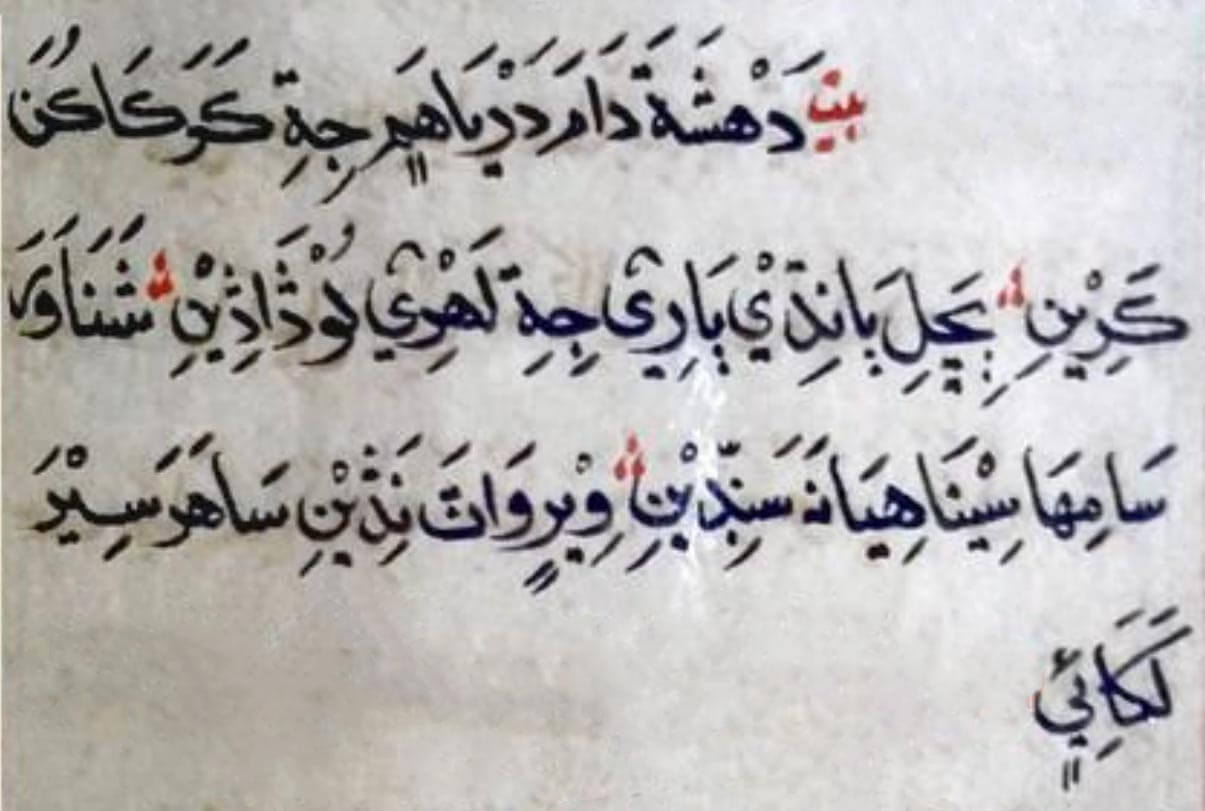 بيت دَهْشَةَ دَامَ دَرْيَاهٍ مِ جِةِ كَوَكَا كُنَ
كَرِيْنِ بَحِلِ بَانِڌِيْ بَارِيْ جِةِ لَهْرِيْ لُوْڏَاڏِيْنِ شَنَاوَرَ
سَامِهَا سِيْنَا هِيَانَہَ سَنِدِّيْنِ وِيْرٍ وَاتَ نِڌِيْنِ سَاهَرَ سِيْرَ
لَكَائِيٍ